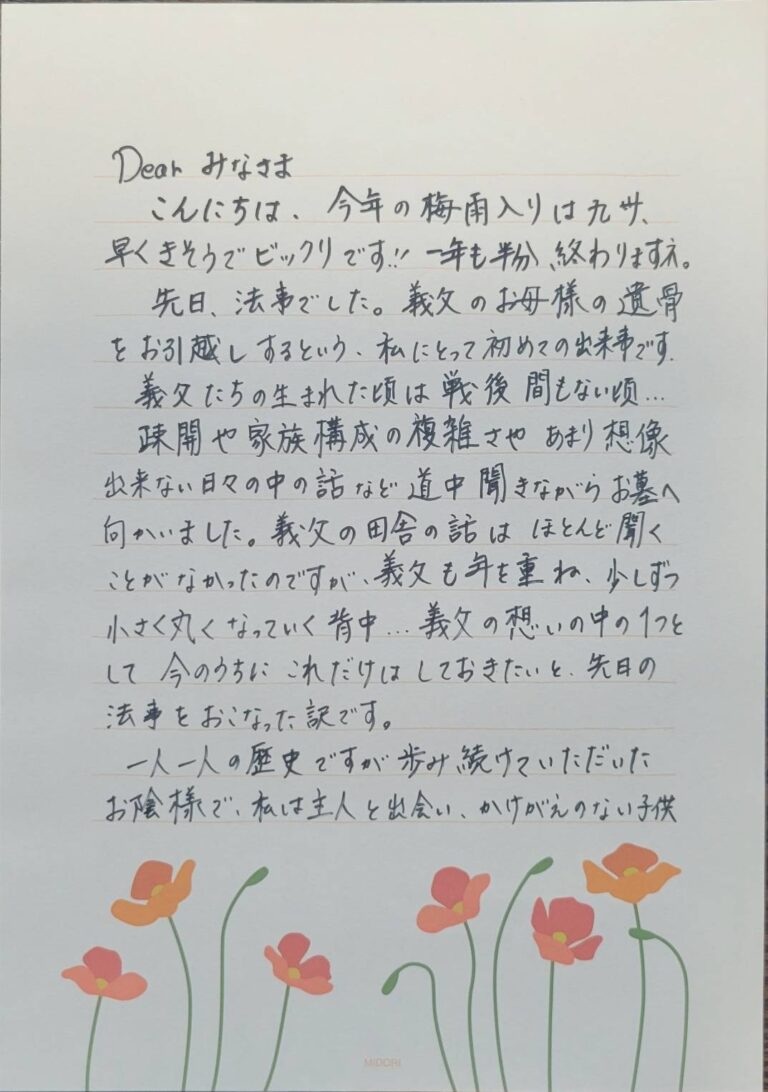 Dear みなさま
こんにちは、今年の梅雨入りは九州、
早くきそうでビックリです!! 一年も半分、終わりますネ。
先日、法事でした。義父のお母様の遺骨
をお引越しするという、私にとって初めての出来事です.
義父たちの生まれた頃は戦後間もない頃…
疎開や家族構成の複雑さや あまり想像
出来ない日々の中の話など 道中聞きながらお墓へ
向かいました。義父の田舎の話は ほとんど聞く
ことがなかったのですが、義父も年を重ね、少しずつ
小さく丸くなっていく背中…義父の想いの中の1つと
して 今のうちに これだけは しておきたいと、先日の
法事をおこなった訳です。
一人一人の歴史ですが歩み続けていただいた
お陰様で、私は主人と出会い、かけがえのない子供
MIDORI